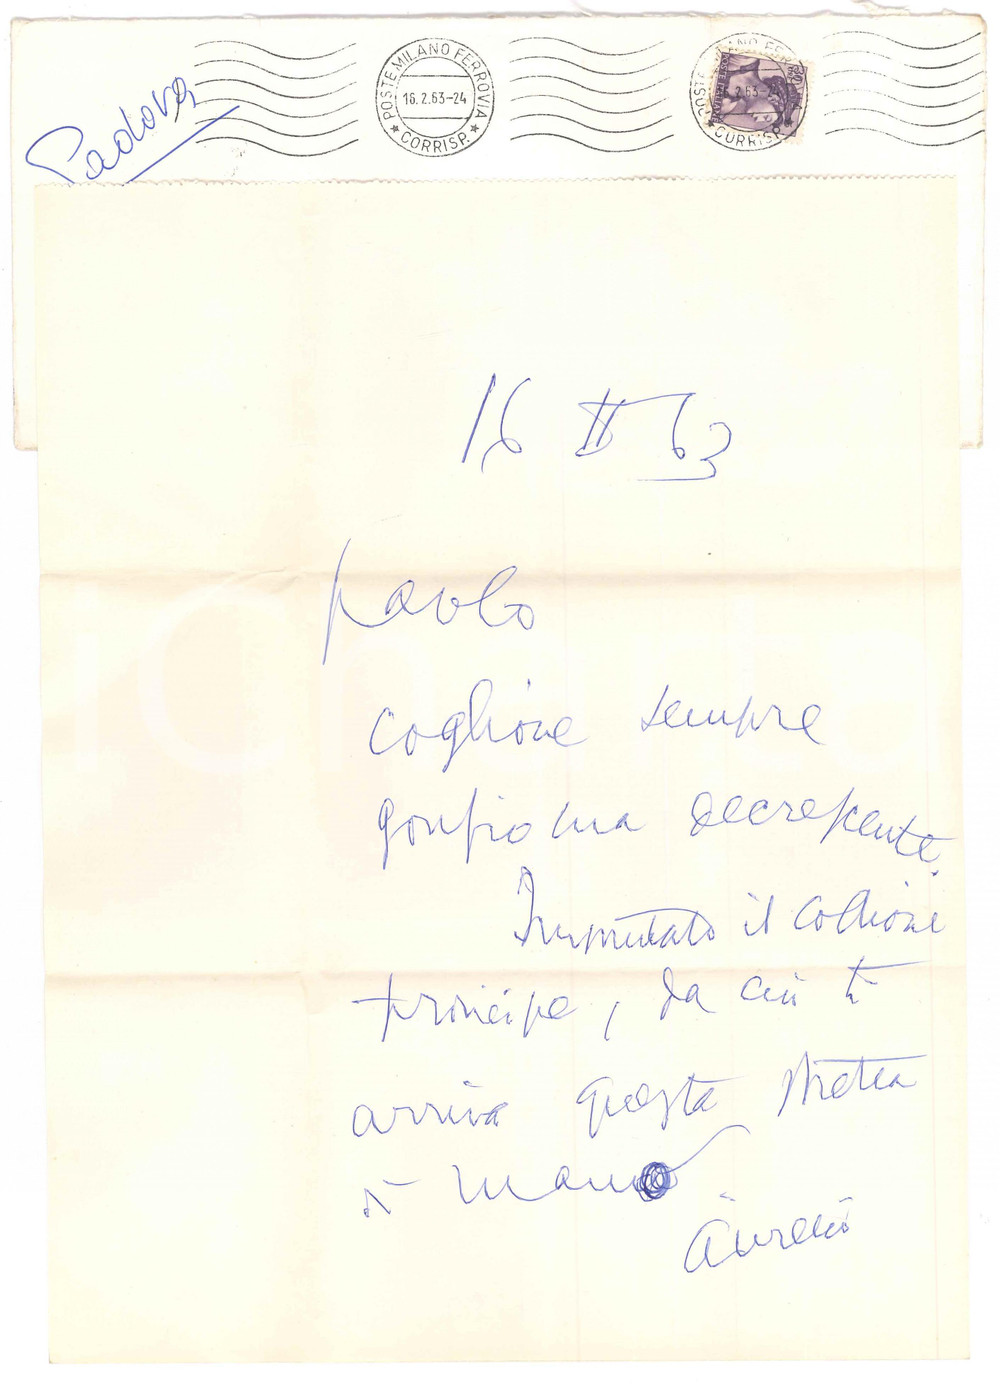 Padova
POSTE MILANO FERROVIA
16.2.63-24
CORRISP.
POSTE ITALIANE
CORRISP.
16 II 63
Paolo
coglione sempre
gonfio ma decrescente.
Imputato il coglione
principe, da cui ti
arriva questa stretta
di mano
Aurelio